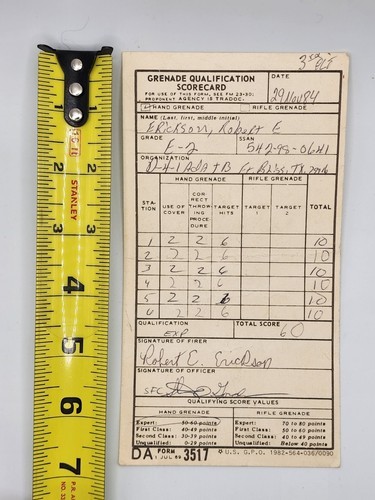 3rd PLT
GRENADE QUALIFICATION
SCORECARD
FOR USE OF THIS FORM, SEE FM 23-30;
PROPONENT AGENCY IS TRADOC.
DATE
29 Nov 84
HAND GRENADE
RIFLE GRENADE
NAME (Last, first, middle initial)
Erickson, Robert E
GRADE
E-2
SSAN
542-98-0641
ORGANIZATION
D-4-1 ADATB Ft. Bliss, TX.
HAND GRENADE RIFLE GRENADE
STA-TION USE OF COVER COR-RECT THROW-ING PROCE-DURE TARGET HITS TARGET 1 TARGET 2 TOTAL
1 2 2 6 10
2 2 2 6 10
3 2 2 6 10
4 2 2 6 10
5 2 2 6 10
6 2 2 6 10
QUALIFICATION
EXP
TOTAL SCORE
60
SIGNATURE OF FIRER
Robert E. Erickson
SIGNATURE OF OFFICER
SFC
QUALIFYING SCORE VALUES
HAND GRENADE RIFLE GRENADE
Expert: 50-60 points Expert: 70 to 80 points
First Class: 40-49 points First Class: 50 to 60 points
Second Class: 30-39 points Second Class: 40 to 49 points
Unqualified: 0-29 points Unqualified: Below 40 points
DA FORM 3517
1 JUL 69
U.S. G.P.O. 1982-564-036/0090
1
2
STANLEY
3
4
5
6
7